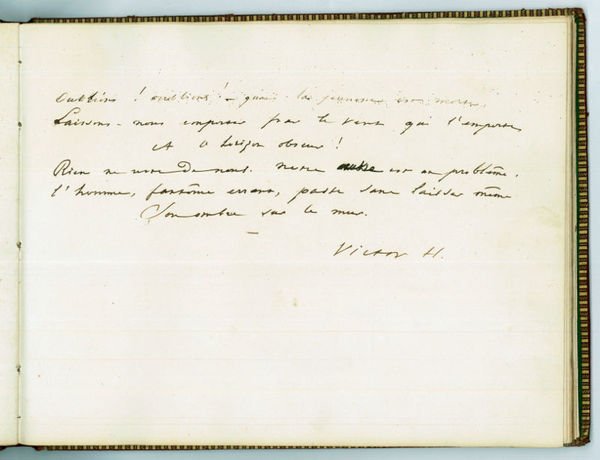 Oublions ! oublions ! — quand la jeunesse est morte,
Laissons-nous emporter par le vent qui l'emporte
A l'horizon obscur !
Rien ne reste de nous. notre œuvre est un problème.
l'homme, fantôme errant, passe sans laisser même
Son ombre sur le mur.
Victor H.